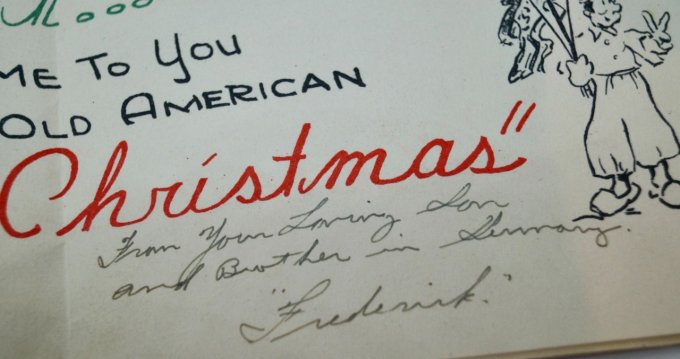 ME TO YOU
OLD AMERICAN
Christmas"
From Your Loving Son
and Brother in Germany.
"Frederick."